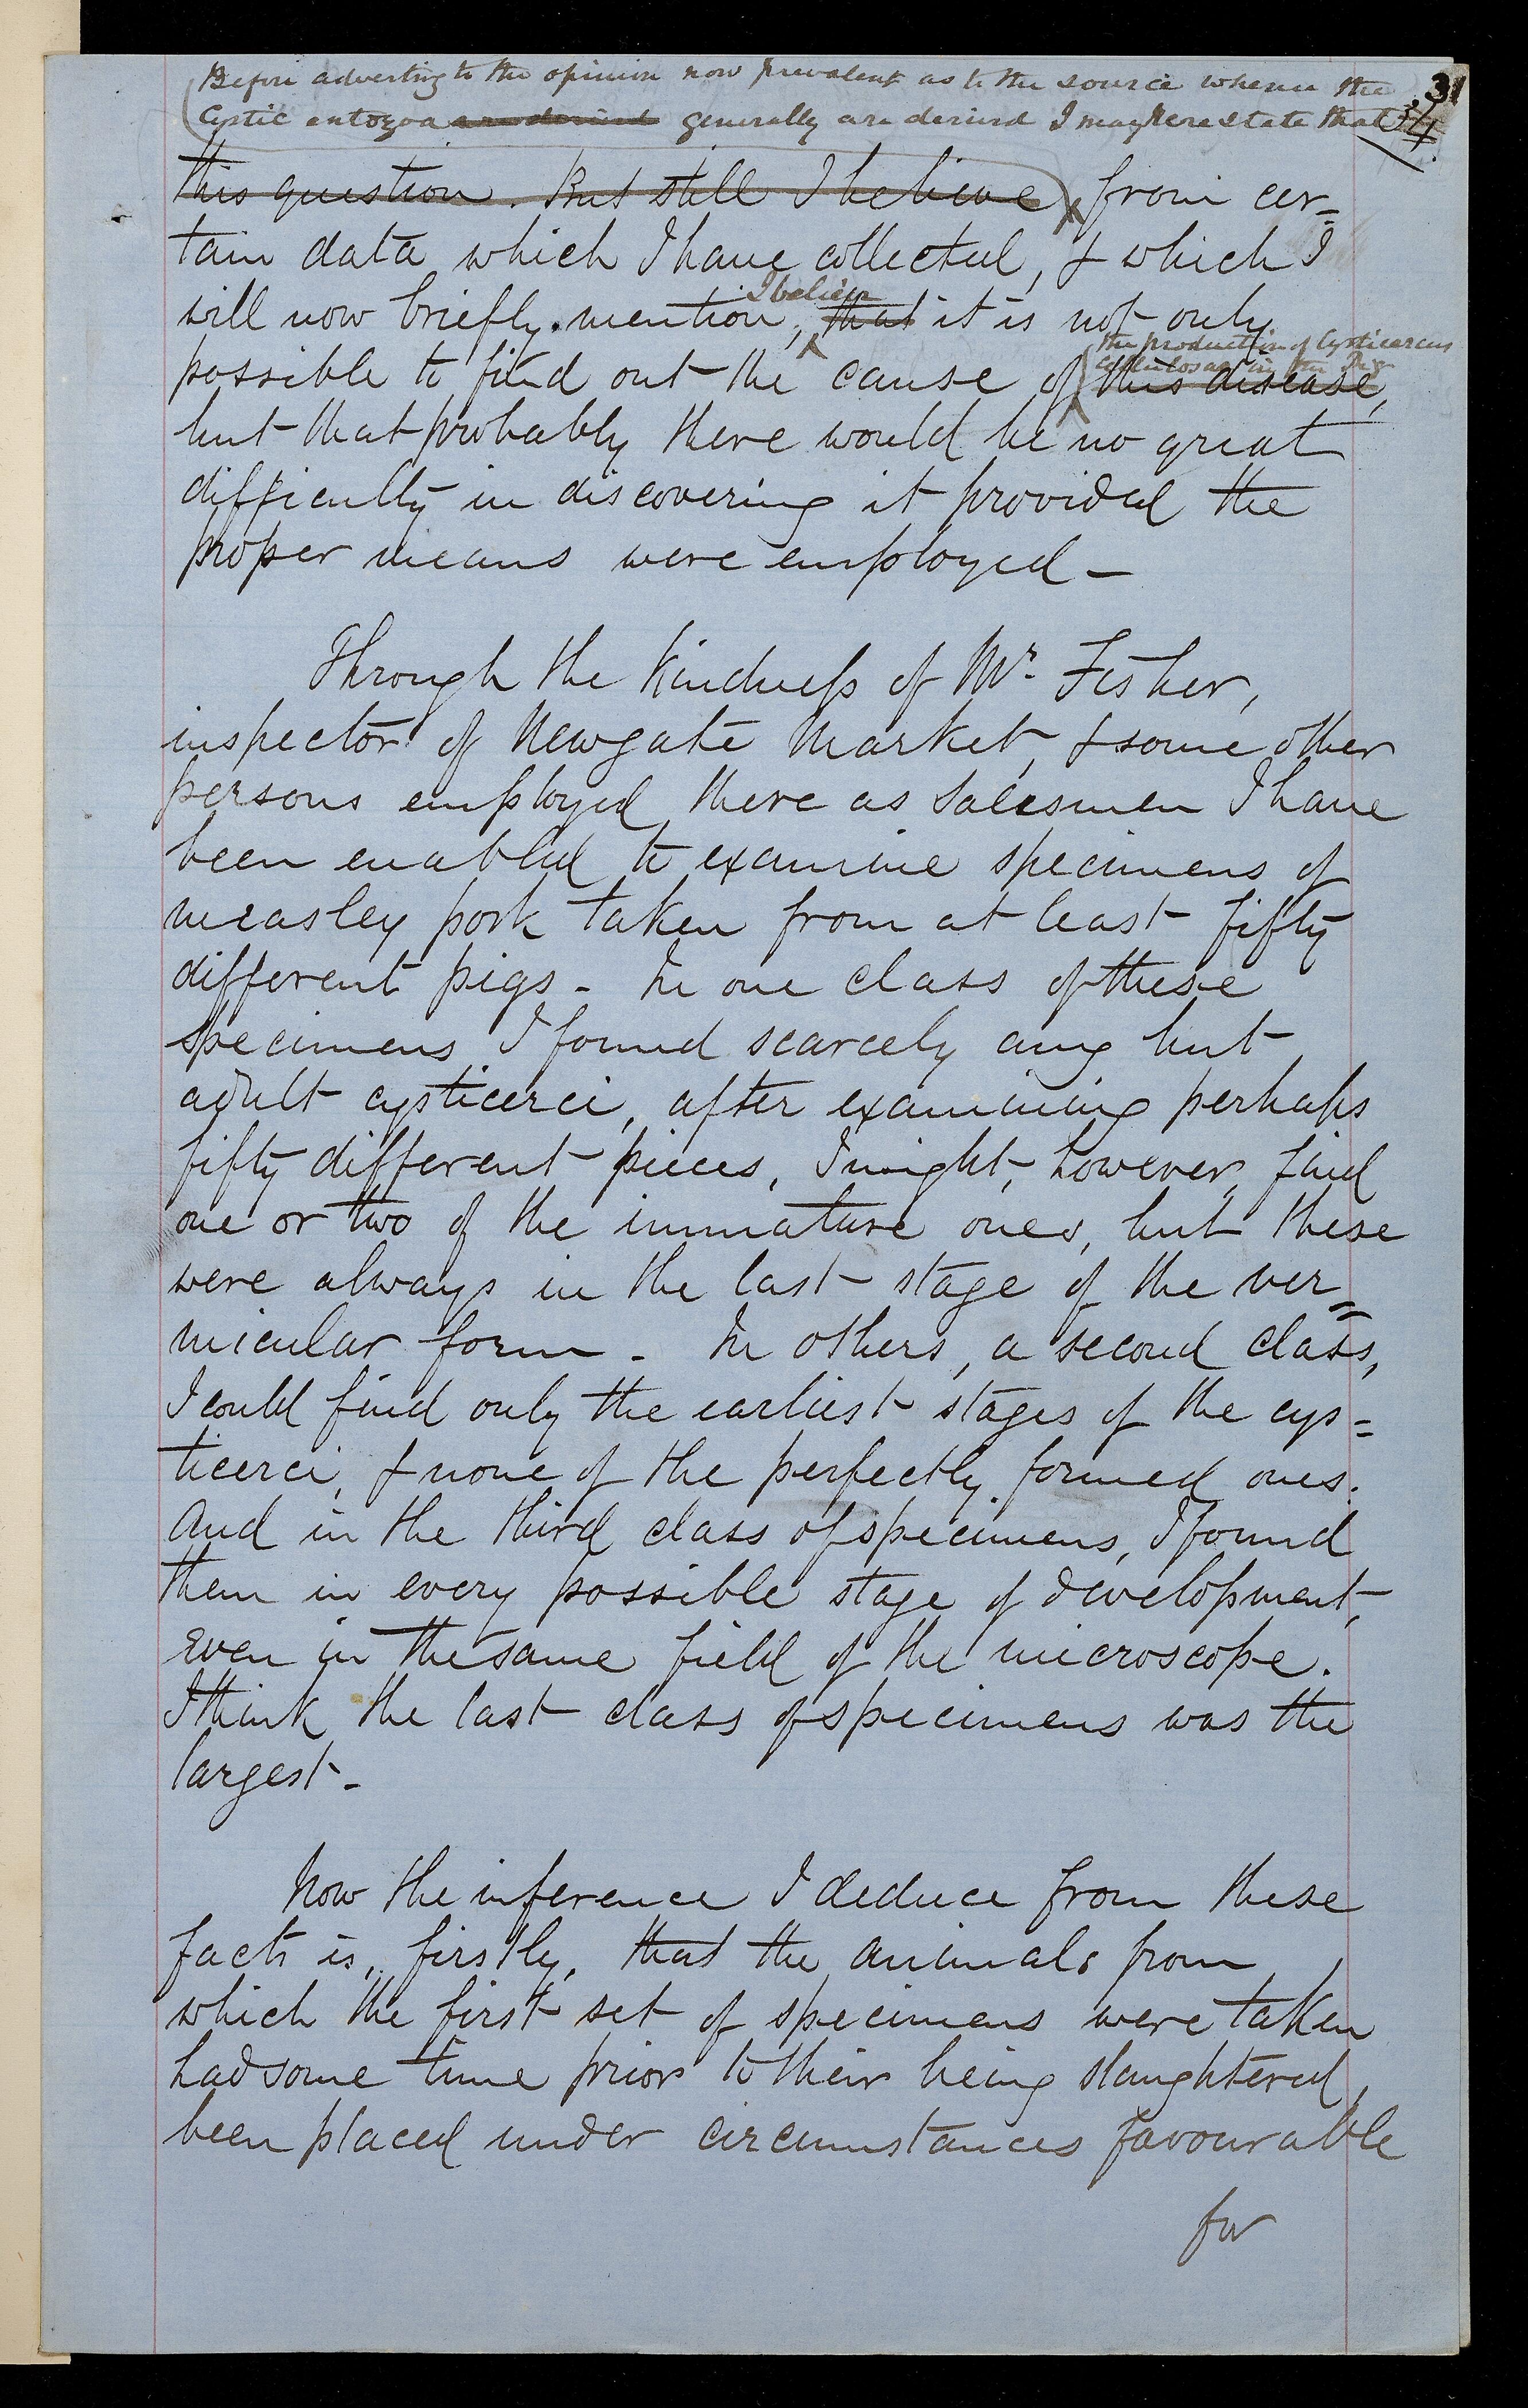 Before adverting to the opinion now prevalent as to the source whence the
31
Cystic entozoa are derived generally are derived I may here state that
34
this question. But still I believe from cer=
tain data which I have collected, & which I
I believe
will now briefly mention, that it is not only
the production of Cysticercus
cellulosae in the Pig
possible to find out the cause of this disease,
but that probably there would be no great
difficulty in discovering it provided the
proper means were employed -
Through the kindness of Mr. Fisher,
inspector of Newgate Market, & some other
persons employed there as Salesmen I have
been enabled to examine specimens of
measley pork taken from at least fifty
different pigs - In one class of these
specimens I found scarcely any but
adult cysticerci, after examining perhaps
fifty different pieces, I might, however, find
one or two of the immature ones, but these
were always in the last stage of the ver=
micular form - In others, a second class,
I could find only the earliest stages of the cys=
ticerci, & none of the perfectly formed ones.
And in the third class of specimens, I found
them in every possible stage of development,
even in the same field of the microscope.
I think the last class of specimens was the
largest -
Now the inference I deduce from these
facts is, firstly, that the animals from
which the first set of specimens were taken
had some time prior to their being slaughtered,
been placed under circumstances favourable
for